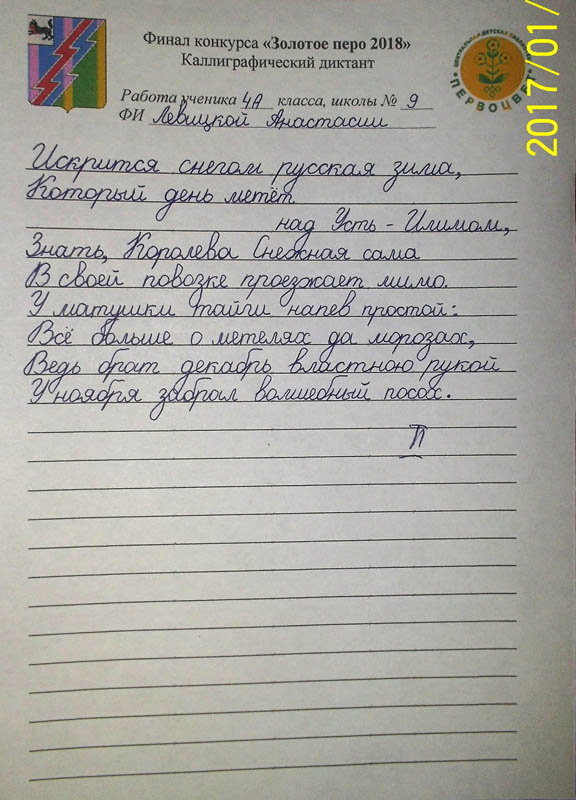 Финал конкурса «Золотое перо 2018»
Каллиграфический диктант
Работа ученика 4А класса, школы № 9
ФИ Левицкой Анастасии
ЦЕНТРАЛЬНАЯ ДЕТСКАЯ БИБЛИОТЕКА
ПЕРВОЦВЕТ
2017/01/
Искрится снегом русская зима,
Который день метёт
над Усть-Илимом,
Знать, Королева Снежная сама
В своей повозке проезжает мимо.
У матушки тайги напев простой:
Всё больше о метелях да морозах,
Ведь брат декабрь властною рукой
У ноября забрал волшебный посох.
П